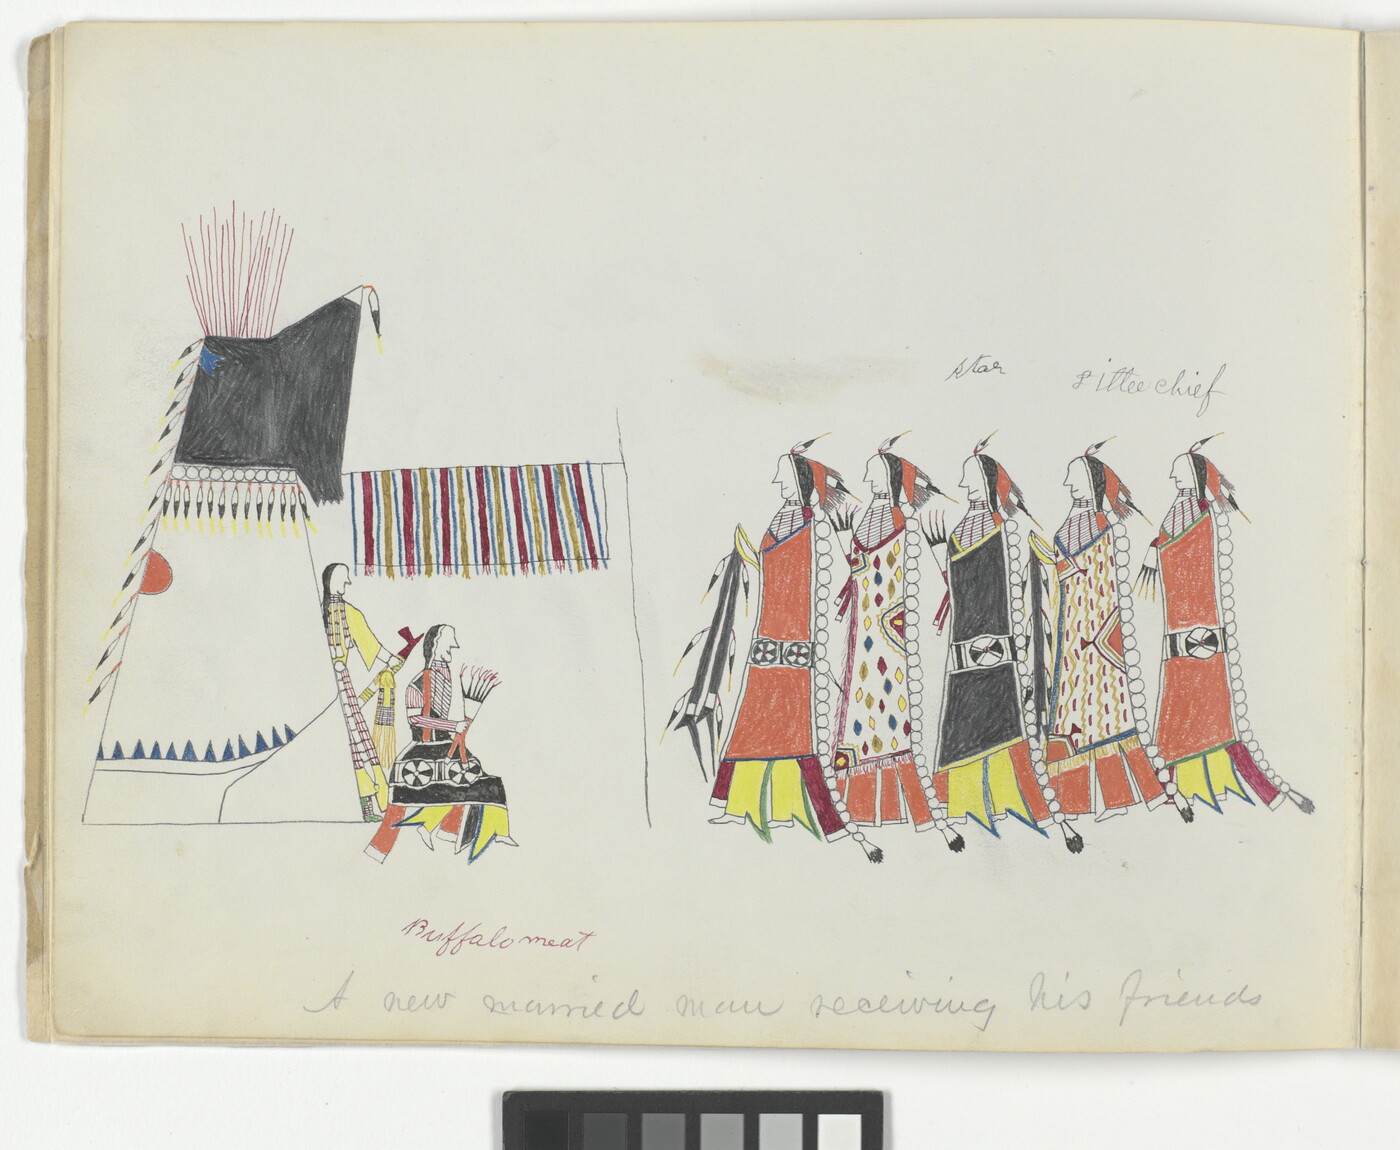 star
Bittee chief
Buffalo meat
A new married man receiving his friends